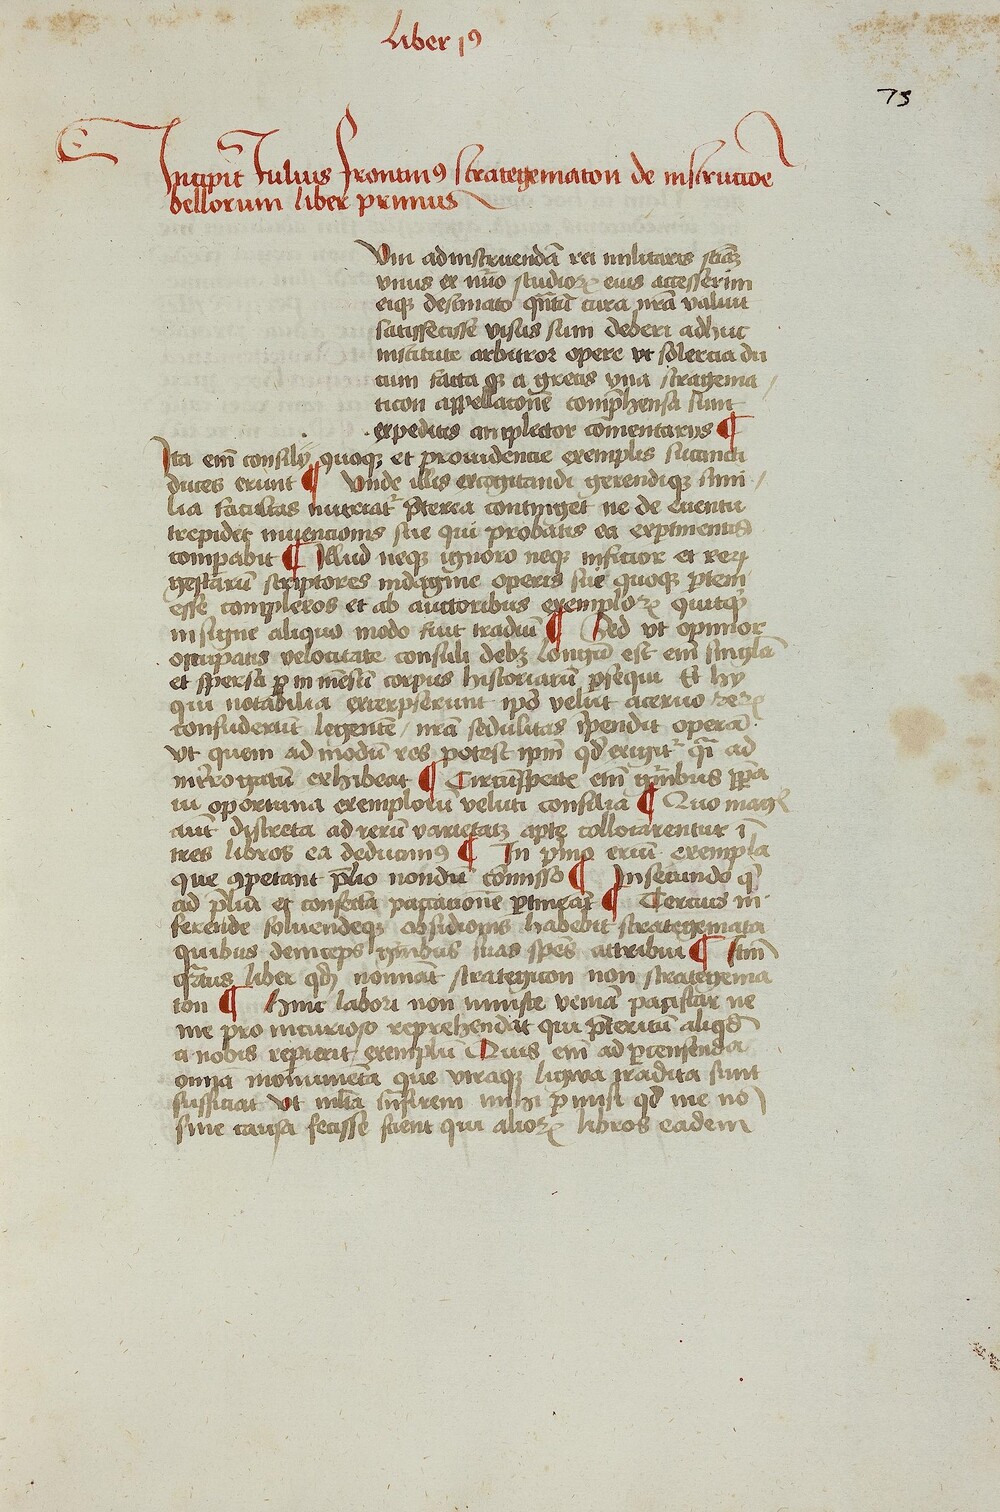 Liber j⁹
75
Incipit Julius Frontin⁹ strategematon de instructiōe
bellorum liber primus
Vm ad instruendā rei militaris sciā
vnus ex nrō studioꝝ eius accesserim
eiqꝫ destinato qntū cura nrā valuit
satisfecisse visus sum deberi adhuc
institute arbitror opere vt solercia du
cum facta qꝫ a grecis vna stragema /
ticon appellatonē comphensa sunt
expeditis amplector comentarijs ¶
Ita em̄ consilij quoqꝫ et prouidencie exemplis succincti
duces erunt ¶ Vnde illis excogitandi gerendiqꝫ simi /
lia facultas nutriat' p̄terea continget ne de euentu
trepidet inuencionis sue qui probatis ea exp̄imentis
compabit ¶ Illud neqꝫ ignoro neqꝫ inficior et reꝝ
gestarū scriptores indagine operis sue quoqꝫ p̄tem
esse complexos et ab auctoribus exemploꝝ quitqꝫ
insigne aliquo modo fuit traditū ¶ Sed vt opinior
occupatis velocitate consuli debꝫ longū est em̄ singla
et spersa ꝑ inmensū corpus historiarū ꝓsequi Et hy
qui notabilia excerpserunt ipō velut aceruo reꝝ
confuderūt legentē / nrā sedulitas īpendit operā
vt quem ad modū res potest ipm̄ qd̄ exigit' qͣi ad
int̄rogatū exhibeat ¶ Circūspecte em̄ gn̄ibus p̄pa
ui oportuna exemplorū veluti consilia ¶ Quo magꝭ
aut̄ discreta ad rerū varietatꝫ apte collocarentur ī
tres libros ea deduxim⁹ ¶ In p̄mo erūt exempla
que ꝯpetant p̄lio nondū cōmisso ¶ In secundo q̄
ad p̄liū et confectā paccationē ꝑtineāt ¶ Tercius in
ferende soluendeqꝫ obsidionis habebit strategemata
quibus deinceps gn̄ibus suas spēs attribui ¶ Itm̄
qͣrtus liber qd̄
nonnāt strategicon non strategema
ton ¶ Huic labori non iniuste veniā paciscar ne
me pro incurioso reprehendāt qui p̄teritū aliqd̄
a nobis repierit exemplū Quis em̄ ad ꝑcensenda
omīa monumēta que vtraqꝫ lingwa tradita sunt
sufficiat vt mlta īnsirem mihi ꝑmisi qd̄ me nō
sine causa fecisse scient qui alioꝝ libros eadem